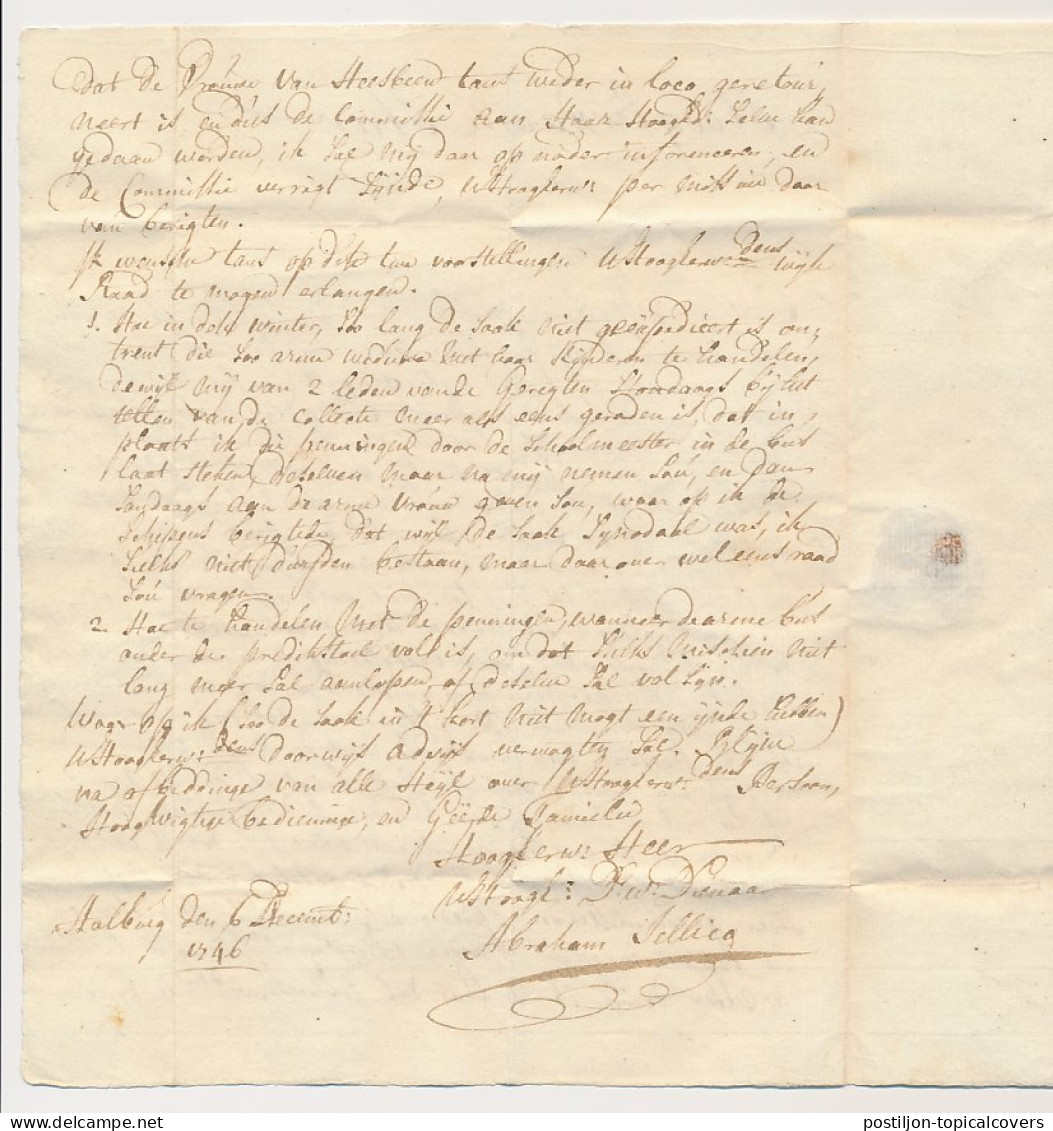 dat de Vrouwe van Heesbeen tans weder in loco geretour,
neert is, en dus de Commissie aan Haar HoogEd: selve kan
gedaan worden, ik sal mij daar op nader informeeren, en
de Commissie verrigt sijnde, UHoogEerw: per missive daar
van berigten.
Ik wensche tans op dese twee voorstellingen UHoogEerw:dens wijse
Raad te mogen erlangen.
1. Hoe in dese winter, soo lang de saak niet geëxpedieert is on,
trent die soo arme weduwe met haar kijnderen te handelen,
dewijl mij van 2 leden van de Geregten Hondaags bij het
tellen van de collecte meer als eens geraden is, dat in,
plaats ik die penningen door de schoolmeester in de bus
laat steken deselven maar na mij nemen sou, en dan
sondaags aan de arme vrouw geven sou, waar op ik de
schepens berigtede, dat wijl de saak Synodaal was, ik
sulks niet durfden bestaan, maar daar over wel eens raad
sou vragen.
2. Hoe te handelen met de penningen, wanneer de arme bus
onder de predikstoel vol is, om dat sulks misschien niet
lang meer sal aanlopen, of deselve sal vol sijn.
Waar op ik (soo de saak in 't kort niet mogt een ijnde hebben)
UHoogEerw:dens doorwijs advijs verwagten sal. Blijve
na afbeddinge van alle Heijl over UHoogEerw:dens Persoon,
Hoogwigtige bedieninge, en Geëerde Familie
HoogEerw: Heer
UHoogE: D:w: Dienaar
Abraham Sellieg
Aalburg den 6 Decemb:
1746
postiljon-topicalcovers